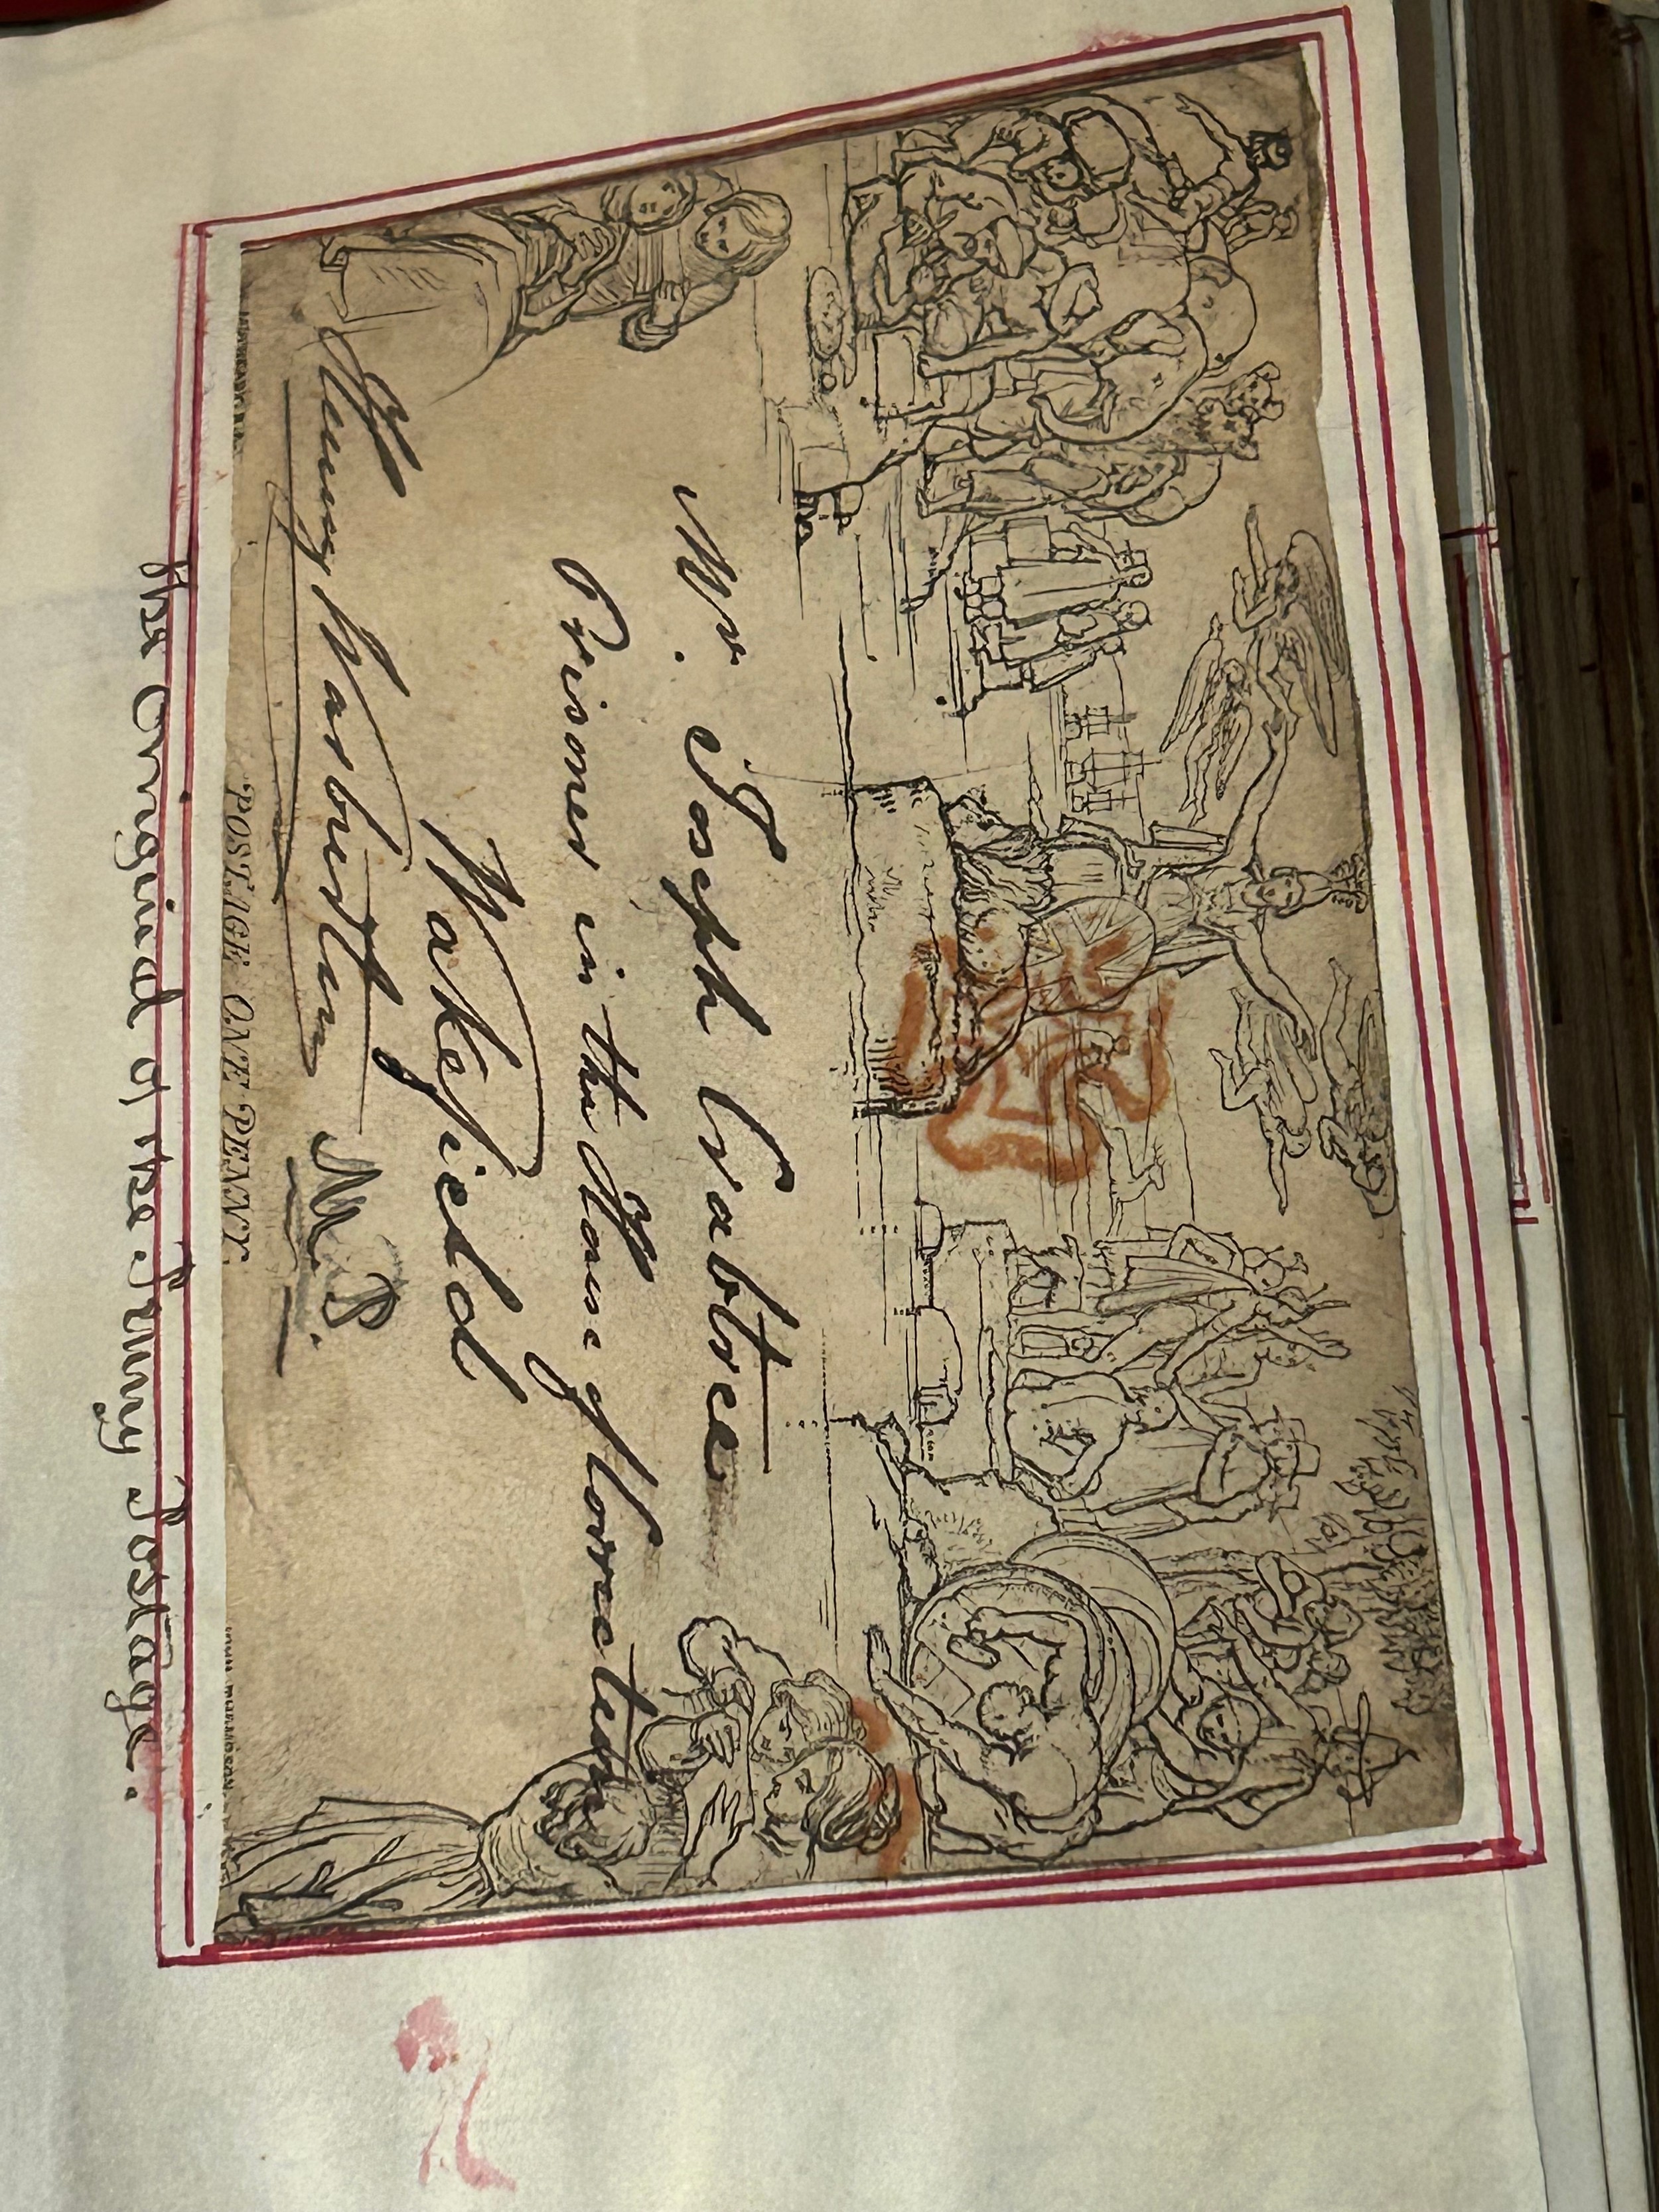 Mr. Joseph Crabtree
Prisoner in the House of Correction
Wakefield
Henry Warburton M.P.
POSTAGE ONE PENNY.
The Original of the Penny Postage.